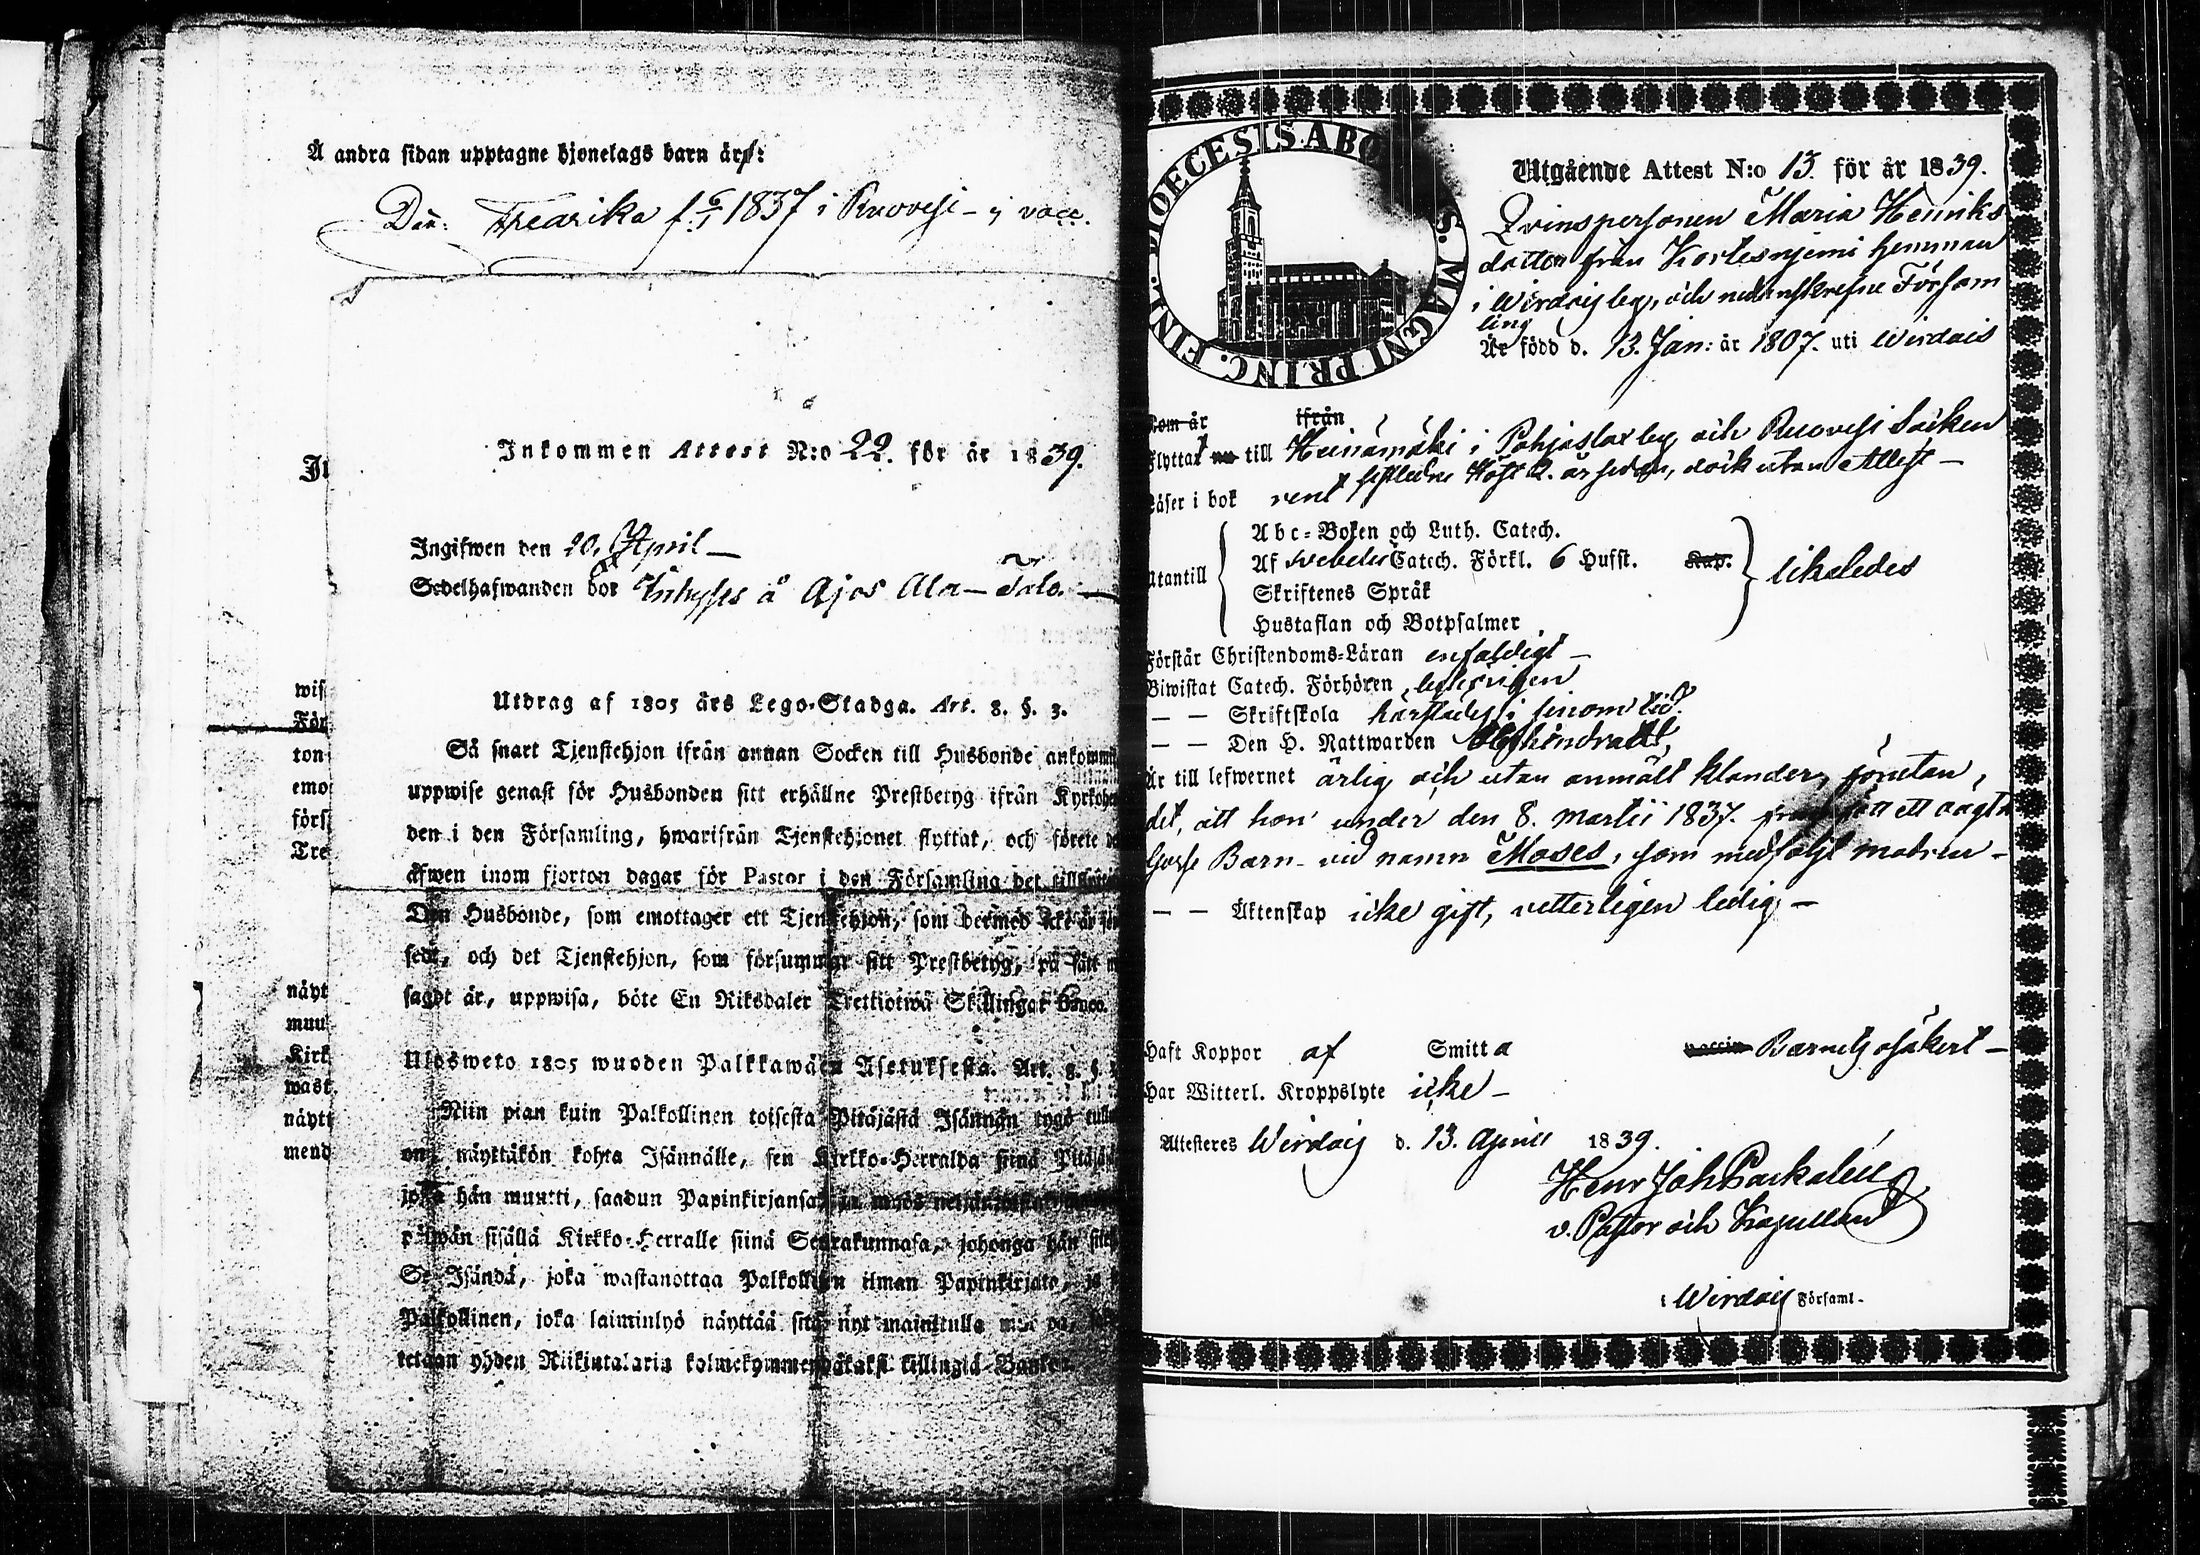 Å andra sidan upptagne hjonelags barn är:
Dår: Fredrika f. 6/1 1837 i Ruovesi – ej vacc.
Inkommen Attest N:o 22. för år 1839.
Ingifwen den 20. April –
Sedelhafwanden bor Inhyses å Ajos Ala-Talo. –
wis
För
ton
emo
förs
Tre
näyt
muu
Kirk
wast
näytt
mend
Utdrag af 1805 års Lego-Stadga. Art. 8. §. 3.
Så snart Tjenstehjon ifrån annan Socken till Husbonde ankommit
uppwise genast för Husbonden sitt erhållne Prestbetyg ifrån Kyrkoher
den i den Församling, hwarifrån Tjenstehjonet flyttat, och förete de
äfwen inom fjorton dagar för Pastor i den Församling det tillflyttat
Den Husbonde, som emottager ett Tjenstehjon, som dermed icke är för
sedt, och det Tjenstehjon, som försummar sitt Prestbetyg, på sätt
sagdt är, uppwisa, böte En Riksdaler Trettiotwå Skillingar Banco.
Ulosweto 1805 wuoden Palkkawäen Asetuksesta. Art. 8. §.
Niin pian kuin Palkollinen toisesta Pitäjästä Isännän tygö tullu
on, näyttäkön kohta Isännälle, sen Kirkko-Herralda siinä Pitäjä
joka hän muutti, saadun Papinkirjansa, ja myös
päiwän sisällä Kirkko-Herralle siinä Seurakunnasa, johonga hän
Se Isändä, joka wastanottaa Palkollisen ilman Papinkirjata, ja
Palkollinen, joka laiminlyö näyttää sitä nyt mainitulla
tetaan yhden Riikintalarin kolmekymmendäkaksi killingiä Banko
DIOECESIS ABO S. MAGNI PRINC. FINL.
Utgående Attest N:o 13 för år 1839.
Qvinspersonen Maria Henriks
dotter från Kortesnjemi hemman
i Wirdois by, och nedanskrefne Försam
ling
Är född d. 13. Jan: år 1807. uti Wirdois
Kom år ifrån
flyttat nu till Heinämäki i Pohjaslax by och Ruovesi Socken
sistledne Höst 2. år sedan, dock utan Attest –
Läser i bok rent
Utantill
Abc-Boken och Luth. Catech.
Af Svebelii Catech. Förkl. 6 Hufst. Kap.
Skriftenes Språk
Hustaflan och Botpsalmer
likaledes
Förstår Christendoms-Läran enfaldigt –
Biwistat Catech. Förhören behörigen
– – Skriftskola härstädes i sinom tid.
– – Den H. Nattwarden Oförhindrad,
Är till lefwernet ärlig och utan anmält klander, förutan,
det, att hon under den 8. Martii 1837. ett oägta
Gosse Barn – vid namn Moses, som medföljt modren –
– – Äktenskap icke gift, vetterligen ledig –
Haft Koppor af Smitta vaccin Barnets osäkert –
Har Witterl. Kroppslyte icke –
Attesteres Wirdois d. 13. April 1839.
Henr Joh Packalén
v. Pastor och Kapellan
i Wirdois Församl.